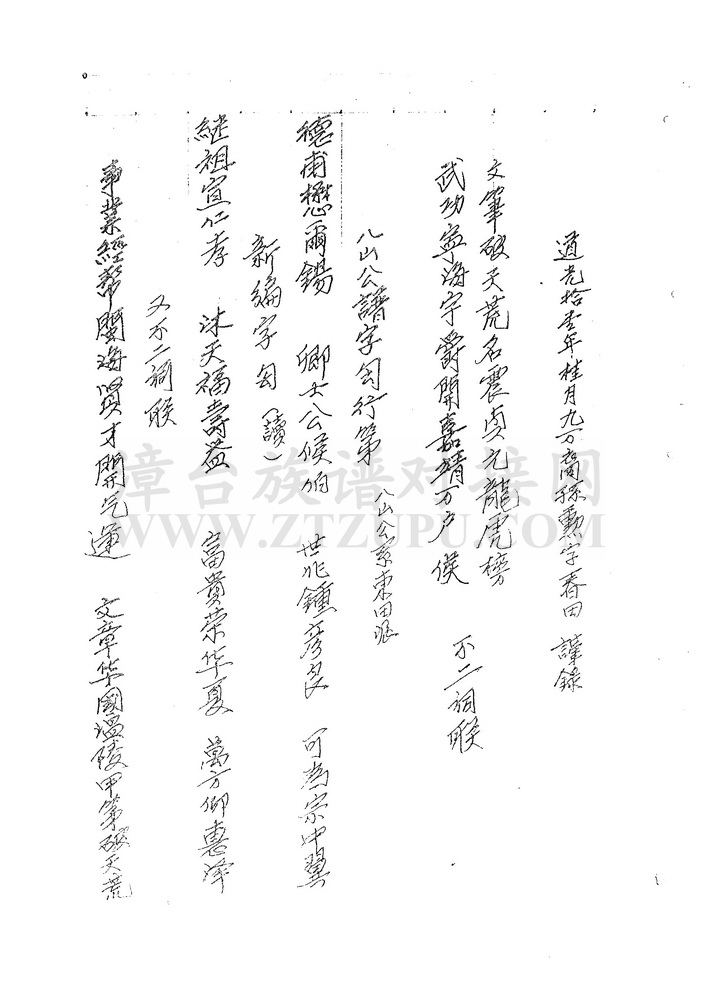 道光拾壹年桂月九万裔孫勳字春田 謹錄
文筆破天荒名震貞元龍虎榜
武功寧海宇爵開嘉靖万户侯 不二祠联
八山公譜字匀行第 八山公系東田派
德甫懋爾錫 卿士公侯伯 世兆鍾彦良 可為宗中翼
新編字匀（讀）
継祖宣仁孝 沐天福壽益 富貴荣华夏 萬方仰惠泽
又不二祠联
事業經幇闢海賢才開气運 文章华國温陵甲第破天荒
漳台族谱对接网
WWW.ZTZUPU.COM